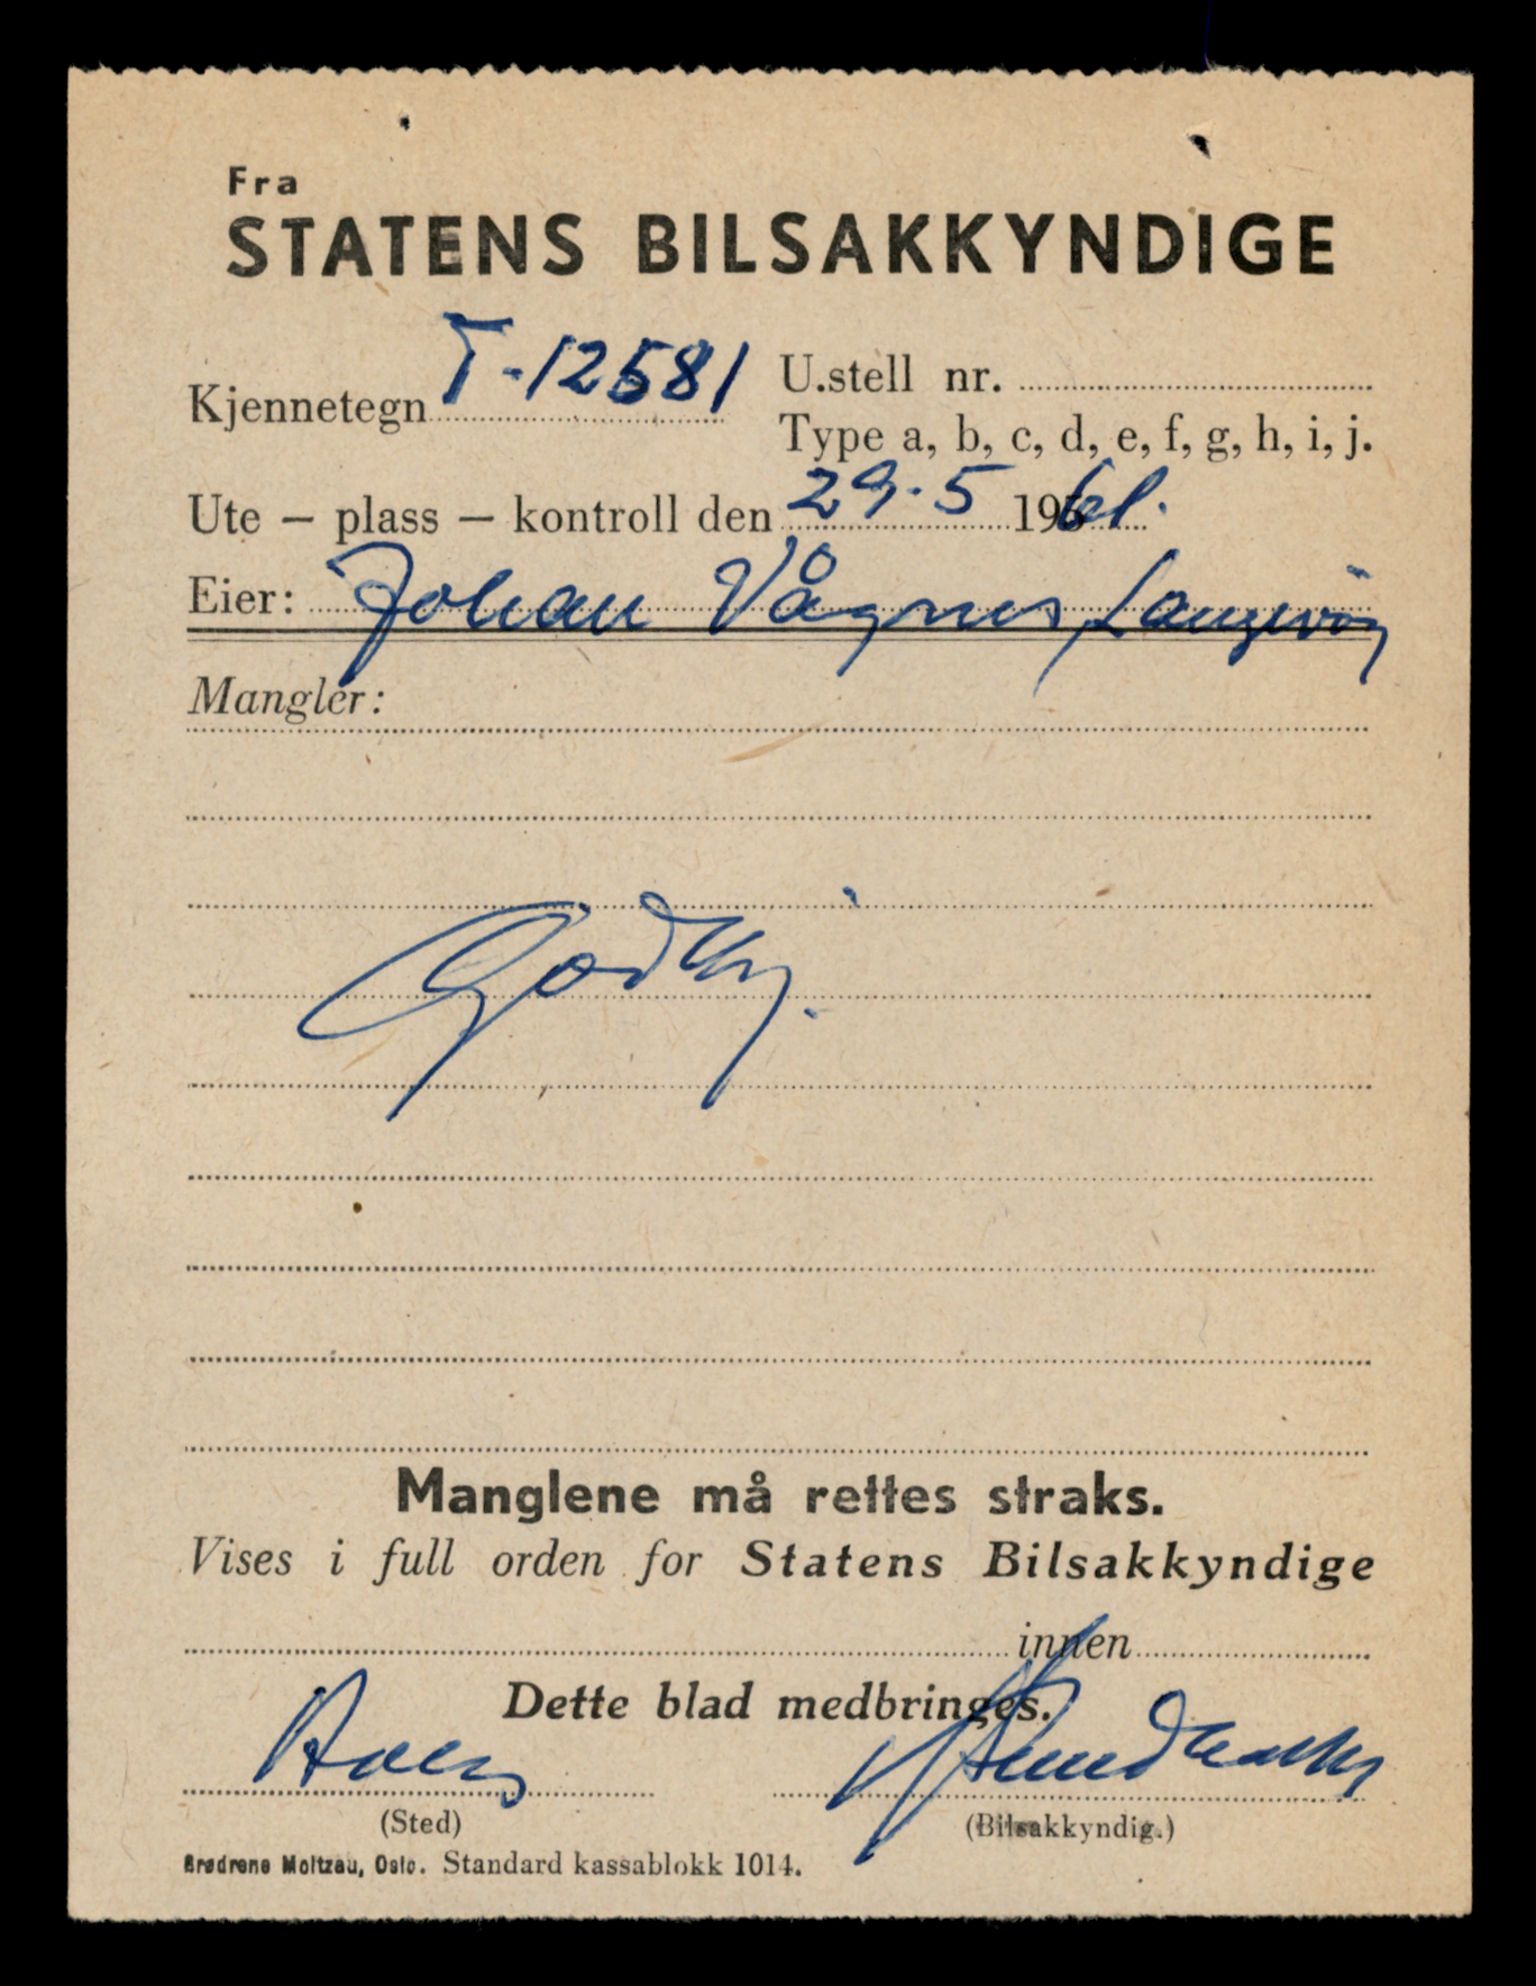 Fra
STATENS BILSAKKYNDIGE
Kjennetegn T-12581
U.stell nr.
Type a, b, c, d, e, f, g, h, i, j.
Ute – plass – kontroll den 29.5 1961.
Eier: Johan Vågnes, Langevåg
Mangler:
Godkj.
Manglene må rettes straks.
Vises i full orden for Statens Bilsakkyndige
innen
Dette blad medbringes.
(Sted)
(Bilsakkyndig.)
Brødrene Moltzau, Oslo. Standard kassablokk 1014.